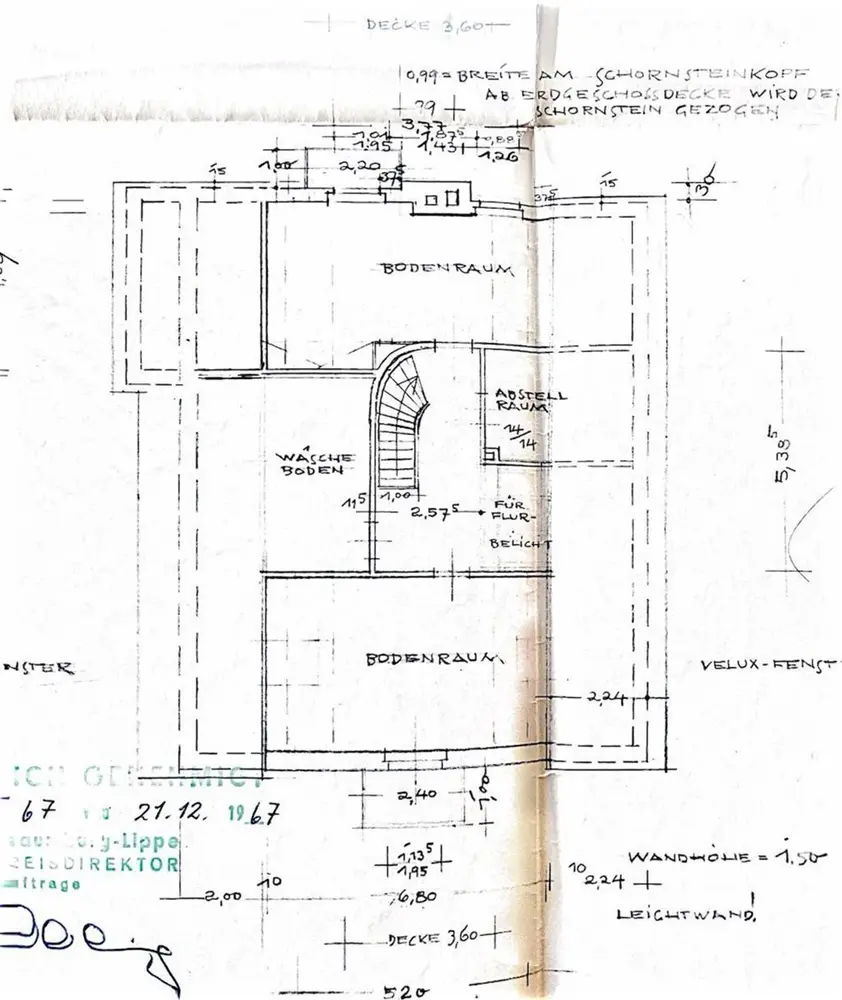 DECKE 3,60
0,99 = BREITE AM SCHORNSTEINKOPF
AB ERDGESCHOSSDECKE WIRD DE
SCHORNSTEIN GEZOGEN
99
3,77
1,01 1,87⁵ ,88⁵
1.95 1,43 1,26
1,00 2,20
15 37⁵ 37⁵ 15 30
BODENRAUM
ABSTELL
RAUM
14/14
5,38⁵
WÄSCHE
BODEN
11⁵ 1,00
2,57⁵
FÜR
FLUR-
BELICHT
BODENRAUM
NSTER
VELUX-FENST
2,24
ICH GENEHMIGT
67 21.12. 1967
2,40
g-Lippe
REISDIREKTOR
ftrage
1,13⁵
1,95
WANDHÖHE = 1,50
2,00 10 6,80 10 2,24
LEICHTWAND!
DECKE 3,60
520